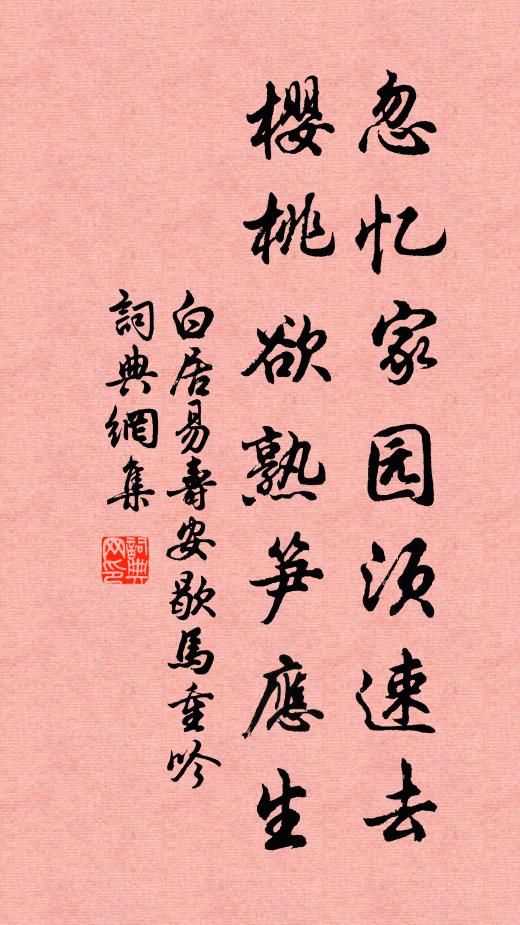 忽忆家园须速去
櫻桃欲熟笋應生
白居易壽安歇馬重吟
詞典網集
詞典网印